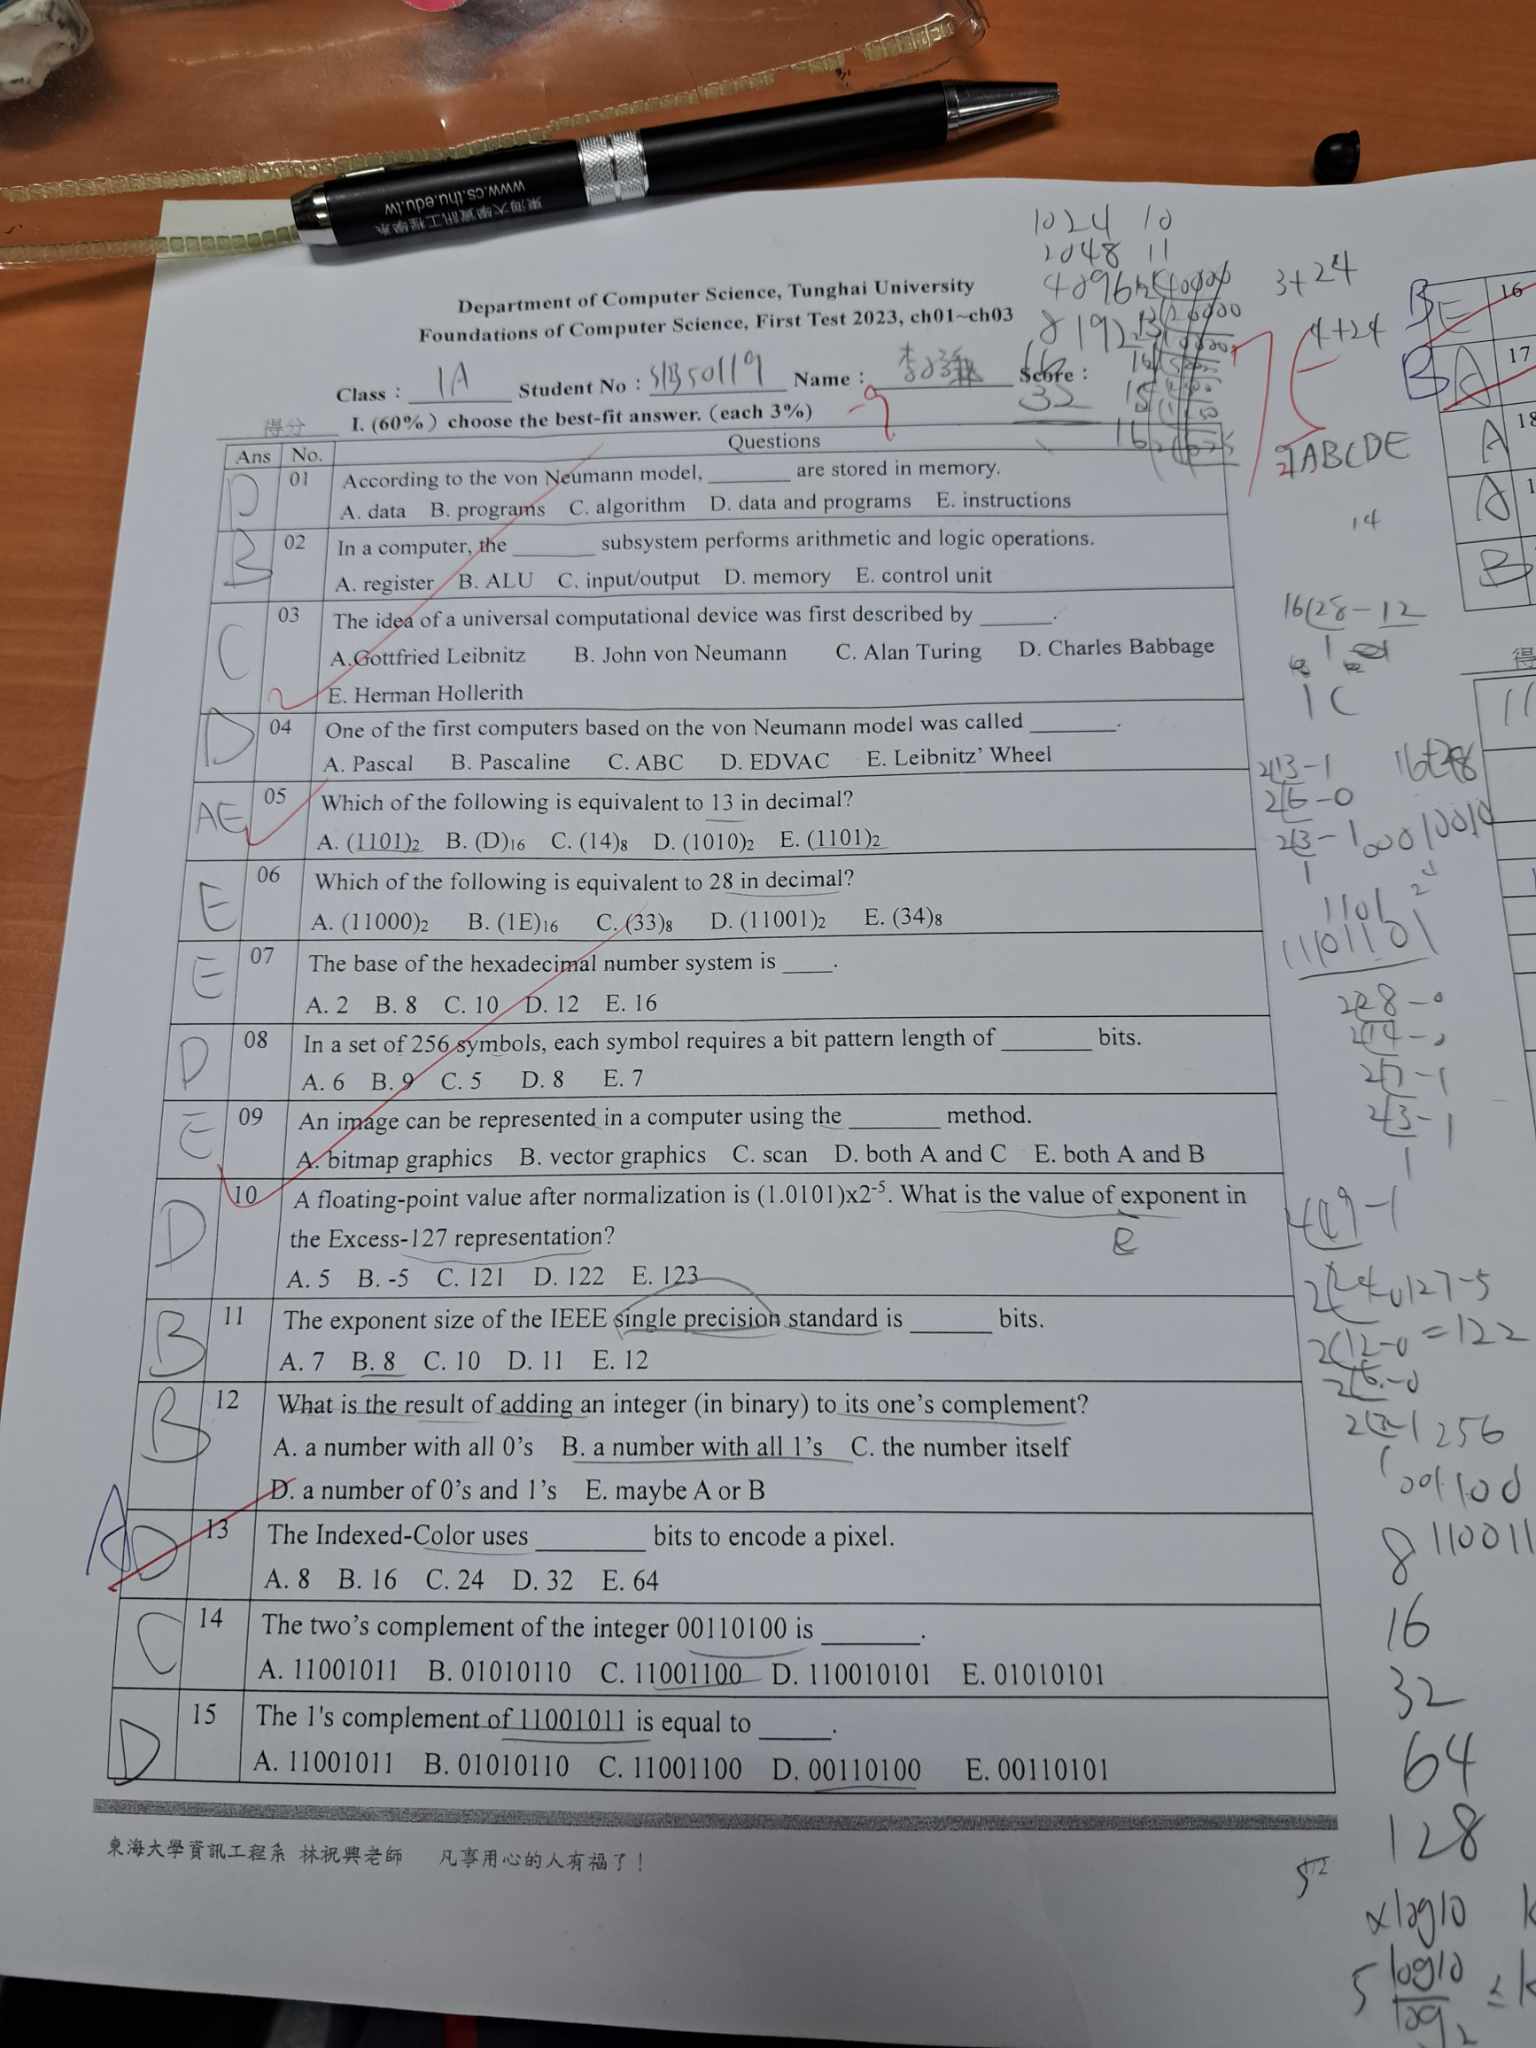 www.cs.thu.edu.tw
東海大學資訊工程學系
Department of Computer Science, Tunghai University
Foundations of Computer Science, First Test 2023, ch01~ch03
Class : 1A Student No : S11350119 Name : Score :
-9
得分 I. (60%) choose the best-fit answer. (each 3%)
Ans No. Questions
D 01 According to the von Neumann model, ________ are stored in memory.
A. data B. programs C. algorithm D. data and programs E. instructions
B 02 In a computer, the ________ subsystem performs arithmetic and logic operations.
A. register B. ALU C. input/output D. memory E. control unit
C 03 The idea of a universal computational device was first described by _______.
A.Gottfried Leibnitz B. John von Neumann C. Alan Turing D. Charles Babbage
E. Herman Hollerith
D 04 One of the first computers based on the von Neumann model was called ________.
A. Pascal B. Pascaline C. ABC D. EDVAC E. Leibnitz' Wheel
AE 05 Which of the following is equivalent to 13 in decimal?
A. (1101)2 B. (D)16 C. (14)8 D. (1010)2 E. (1101)2
E 06 Which of the following is equivalent to 28 in decimal?
A. (11000)2 B. (1E)16 C. (33)8 D. (11001)2 E. (34)8
E 07 The base of the hexadecimal number system is ____.
A. 2 B. 8 C. 10 D. 12 E. 16
D 08 In a set of 256 symbols, each symbol requires a bit pattern length of ________ bits.
A. 6 B. 9 C. 5 D. 8 E. 7
E 09 An image can be represented in a computer using the ________ method.
A. bitmap graphics B. vector graphics C. scan D. both A and C E. both A and B
D 10 A floating-point value after normalization is (1.0101)x2-5. What is the value of exponent in
the Excess-127 representation?
E
A. 5 B. -5 C. 121 D. 122 E. 123
B 11 The exponent size of the IEEE single precision standard is _______ bits.
A. 7 B. 8 C. 10 D. 11 E. 12
B 12 What is the result of adding an integer (in binary) to its one's complement?
A. a number with all 0's B. a number with all 1's C. the number itself
D. a number of 0's and 1's E. maybe A or B
A D 13 The Indexed-Color uses _________ bits to encode a pixel.
A. 8 B. 16 C. 24 D. 32 E. 64
C 14 The two's complement of the integer 00110100 is ________.
A. 11001011 B. 01010110 C. 11001100 D. 110010101 E. 01010101
D 15 The 1's complement of 11001011 is equal to ______.
A. 11001011 B. 01010110 C. 11001100 D. 00110100 E. 00110101
東海大學資訊工程系 林祝興老師 凡事用心的人有福了！
1024 10
2048 11
4096 12
8192 13
16
32
3+24
4+24
ABCDE
14
16 28 - 12
1C
2 13 - 1
2 6 - 0
2 3 - 1
1
00010010
1101
1101101
2 28 - 0
2 14 - 0
2 7 - 1
2 3 - 1
1
127-5
= 122
256
8 110011
16
32
64
128
512
x log10
5 log10
log2
B E 16
B A 17
A 18
A
B
得